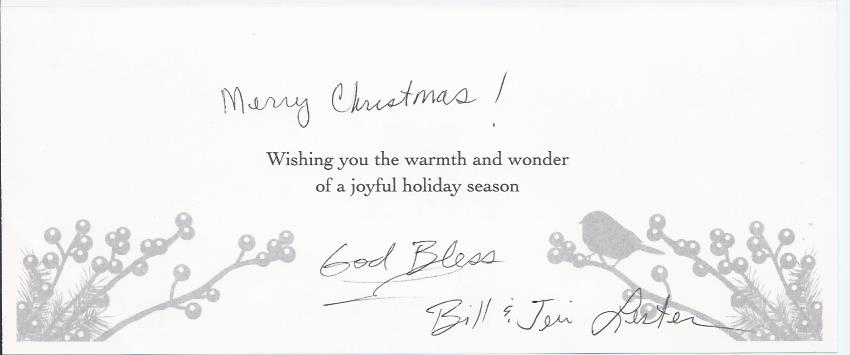 Merry Christmas!
Wishing you the warmth and wonder
of a joyful holiday season
God Bless
Bill & Jeri Lester